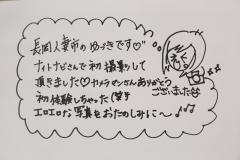 長岡人妻市のゆづきです♡
ナイトナビさんで初撮影して
頂きました♡カメラマンさんありがとう
ございました
初体験しちゃった(笑)
エロエロな写真をおたのしみに〜♪♪